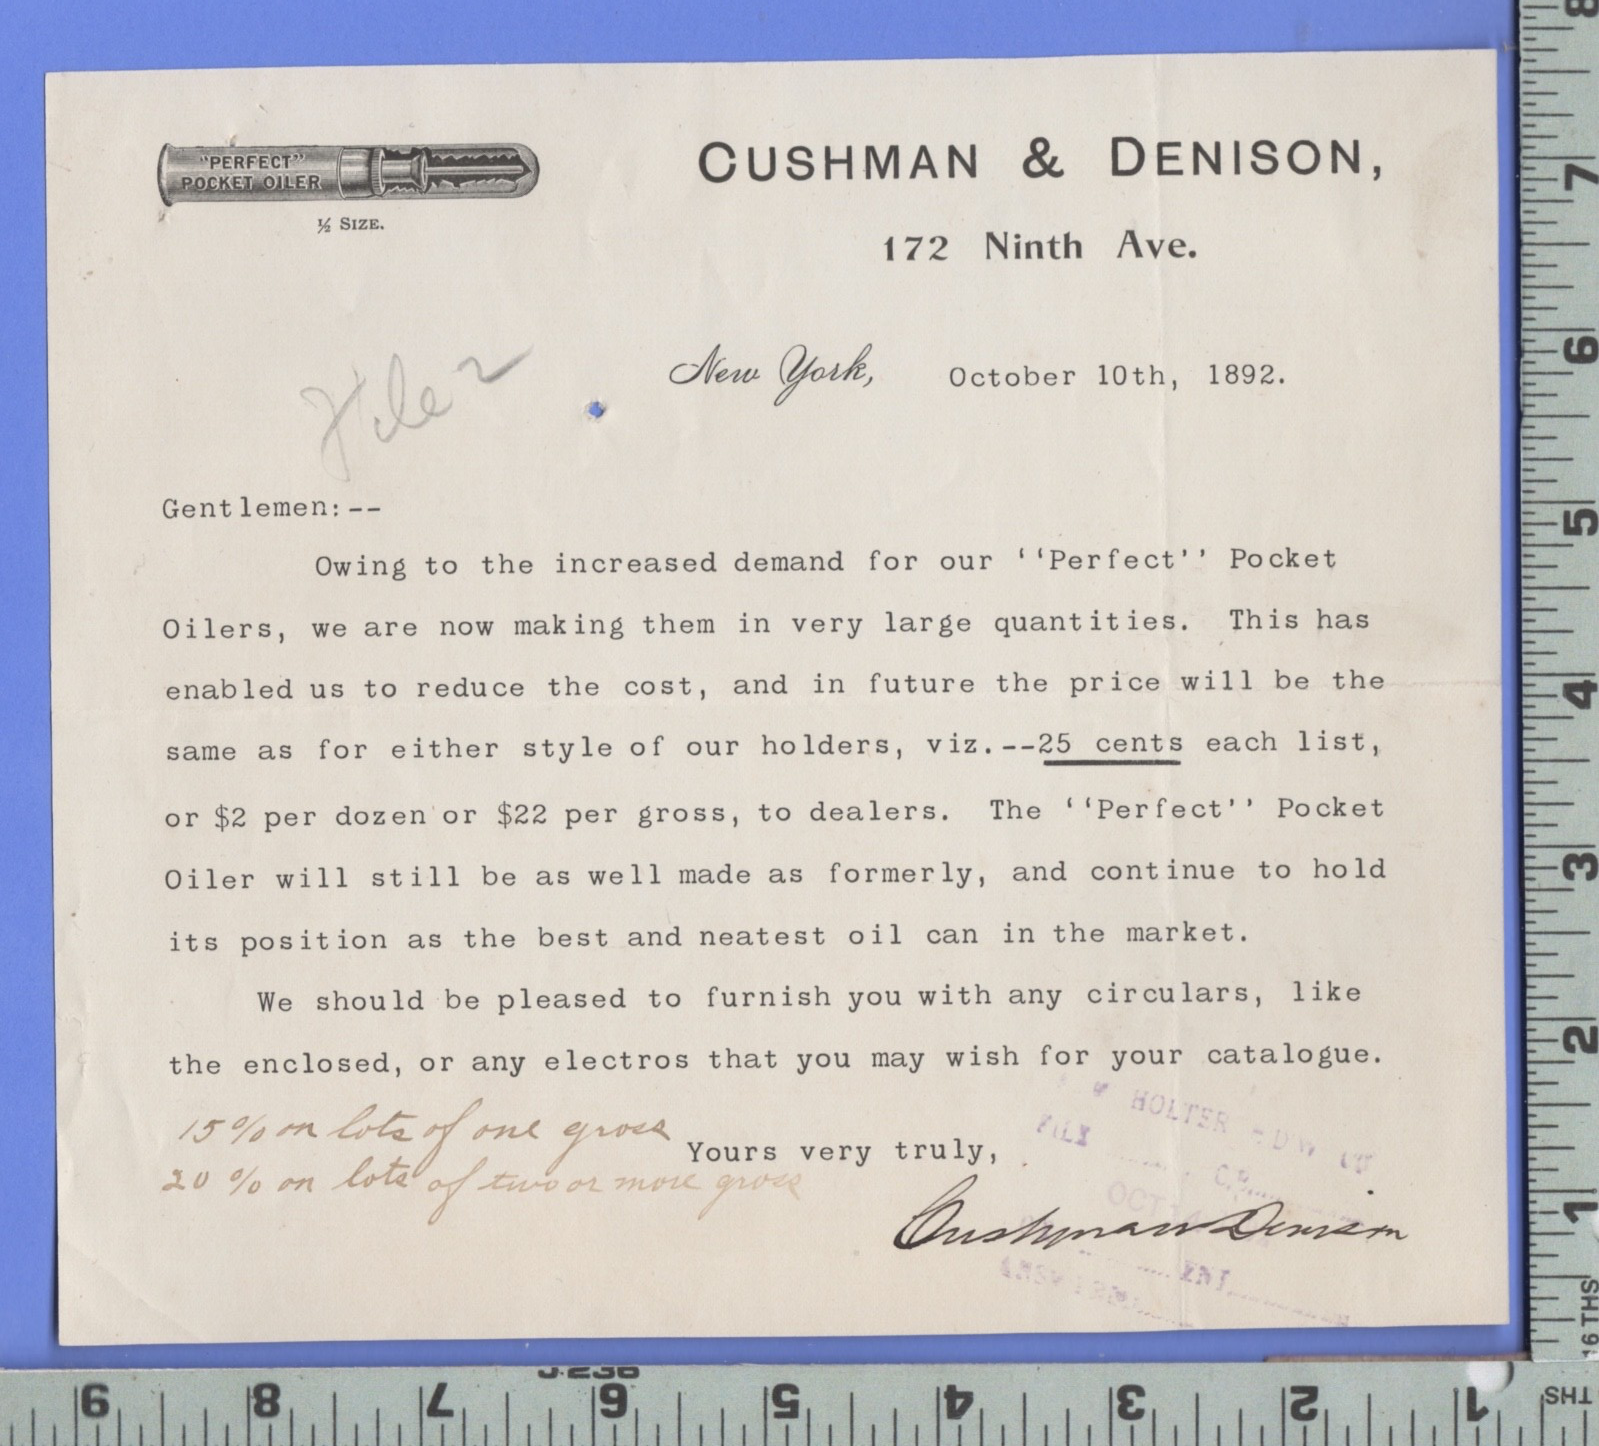 "PERFECT"
POCKET OILER
½ SIZE.
CUSHMAN & DENISON,
172 Ninth Ave.
New York, October 10th, 1892.
File
Gentlemen:--
Owing to the increased demand for our ‘‘Perfect’’ Pocket
Oilers, we are now making them in very large quantities. This has
enabled us to reduce the cost, and in future the price will be the
same as for either style of our holders, viz.--25 cents each list,
or $2 per dozen or $22 per gross, to dealers. The ‘‘Perfect’’ Pocket
Oiler will still be as well made as formerly, and continue to hold
its position as the best and neatest oil can in the market.
We should be pleased to furnish you with any circulars, like
the enclosed, or any electros that you may wish for your catalogue.
15% on lots of one gross
20% on lots of two or more gross
Yours very truly,
Cushman & Denison
HOLTER
OCT
8
7
6
5
4
3
2
1
16 THS
9 8 7 6 5 4 3 2 1
THS